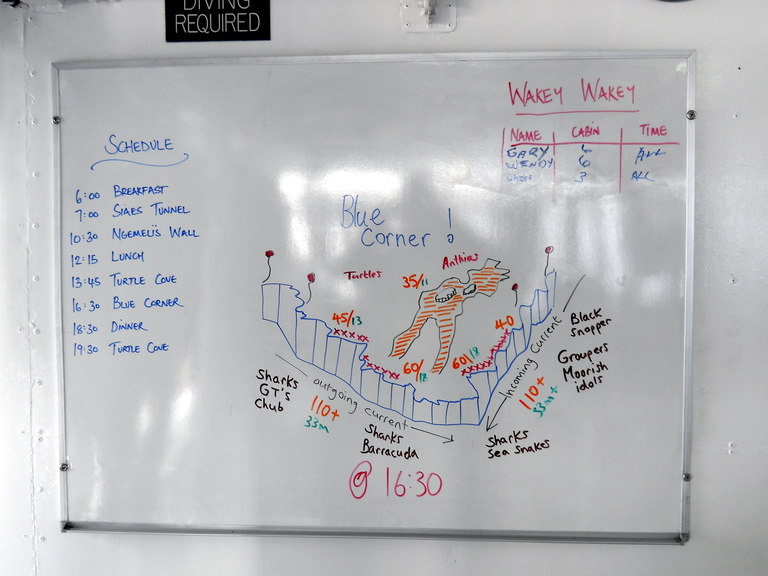 DIVING
REQUIRED
WAKEY WAKEY
NAME CABIN TIME
GARY 6 ALL
WENDY 6
3 ALL
SCHEDULE
6:00 BREAKFAST
7:00 SIAES TUNNEL
10:30 NGEMELIS WALL
12:15 LUNCH
13:45 TURTLE COVE
16:30 BLUE CORNER
18:30 DINNER
19:30 TURTLE COVE
Blue
Corner !
Turtles
Anthias
35/11
45/13
40
60/18
60/18
Sharks
GT's
Chub
outgoing current
110+
33m
Sharks
Barracuda
Incoming Current
110+
33m+
Black
snapper
Groupers
Moorish
idols
Sharks
Sea snakes
@ 16:30